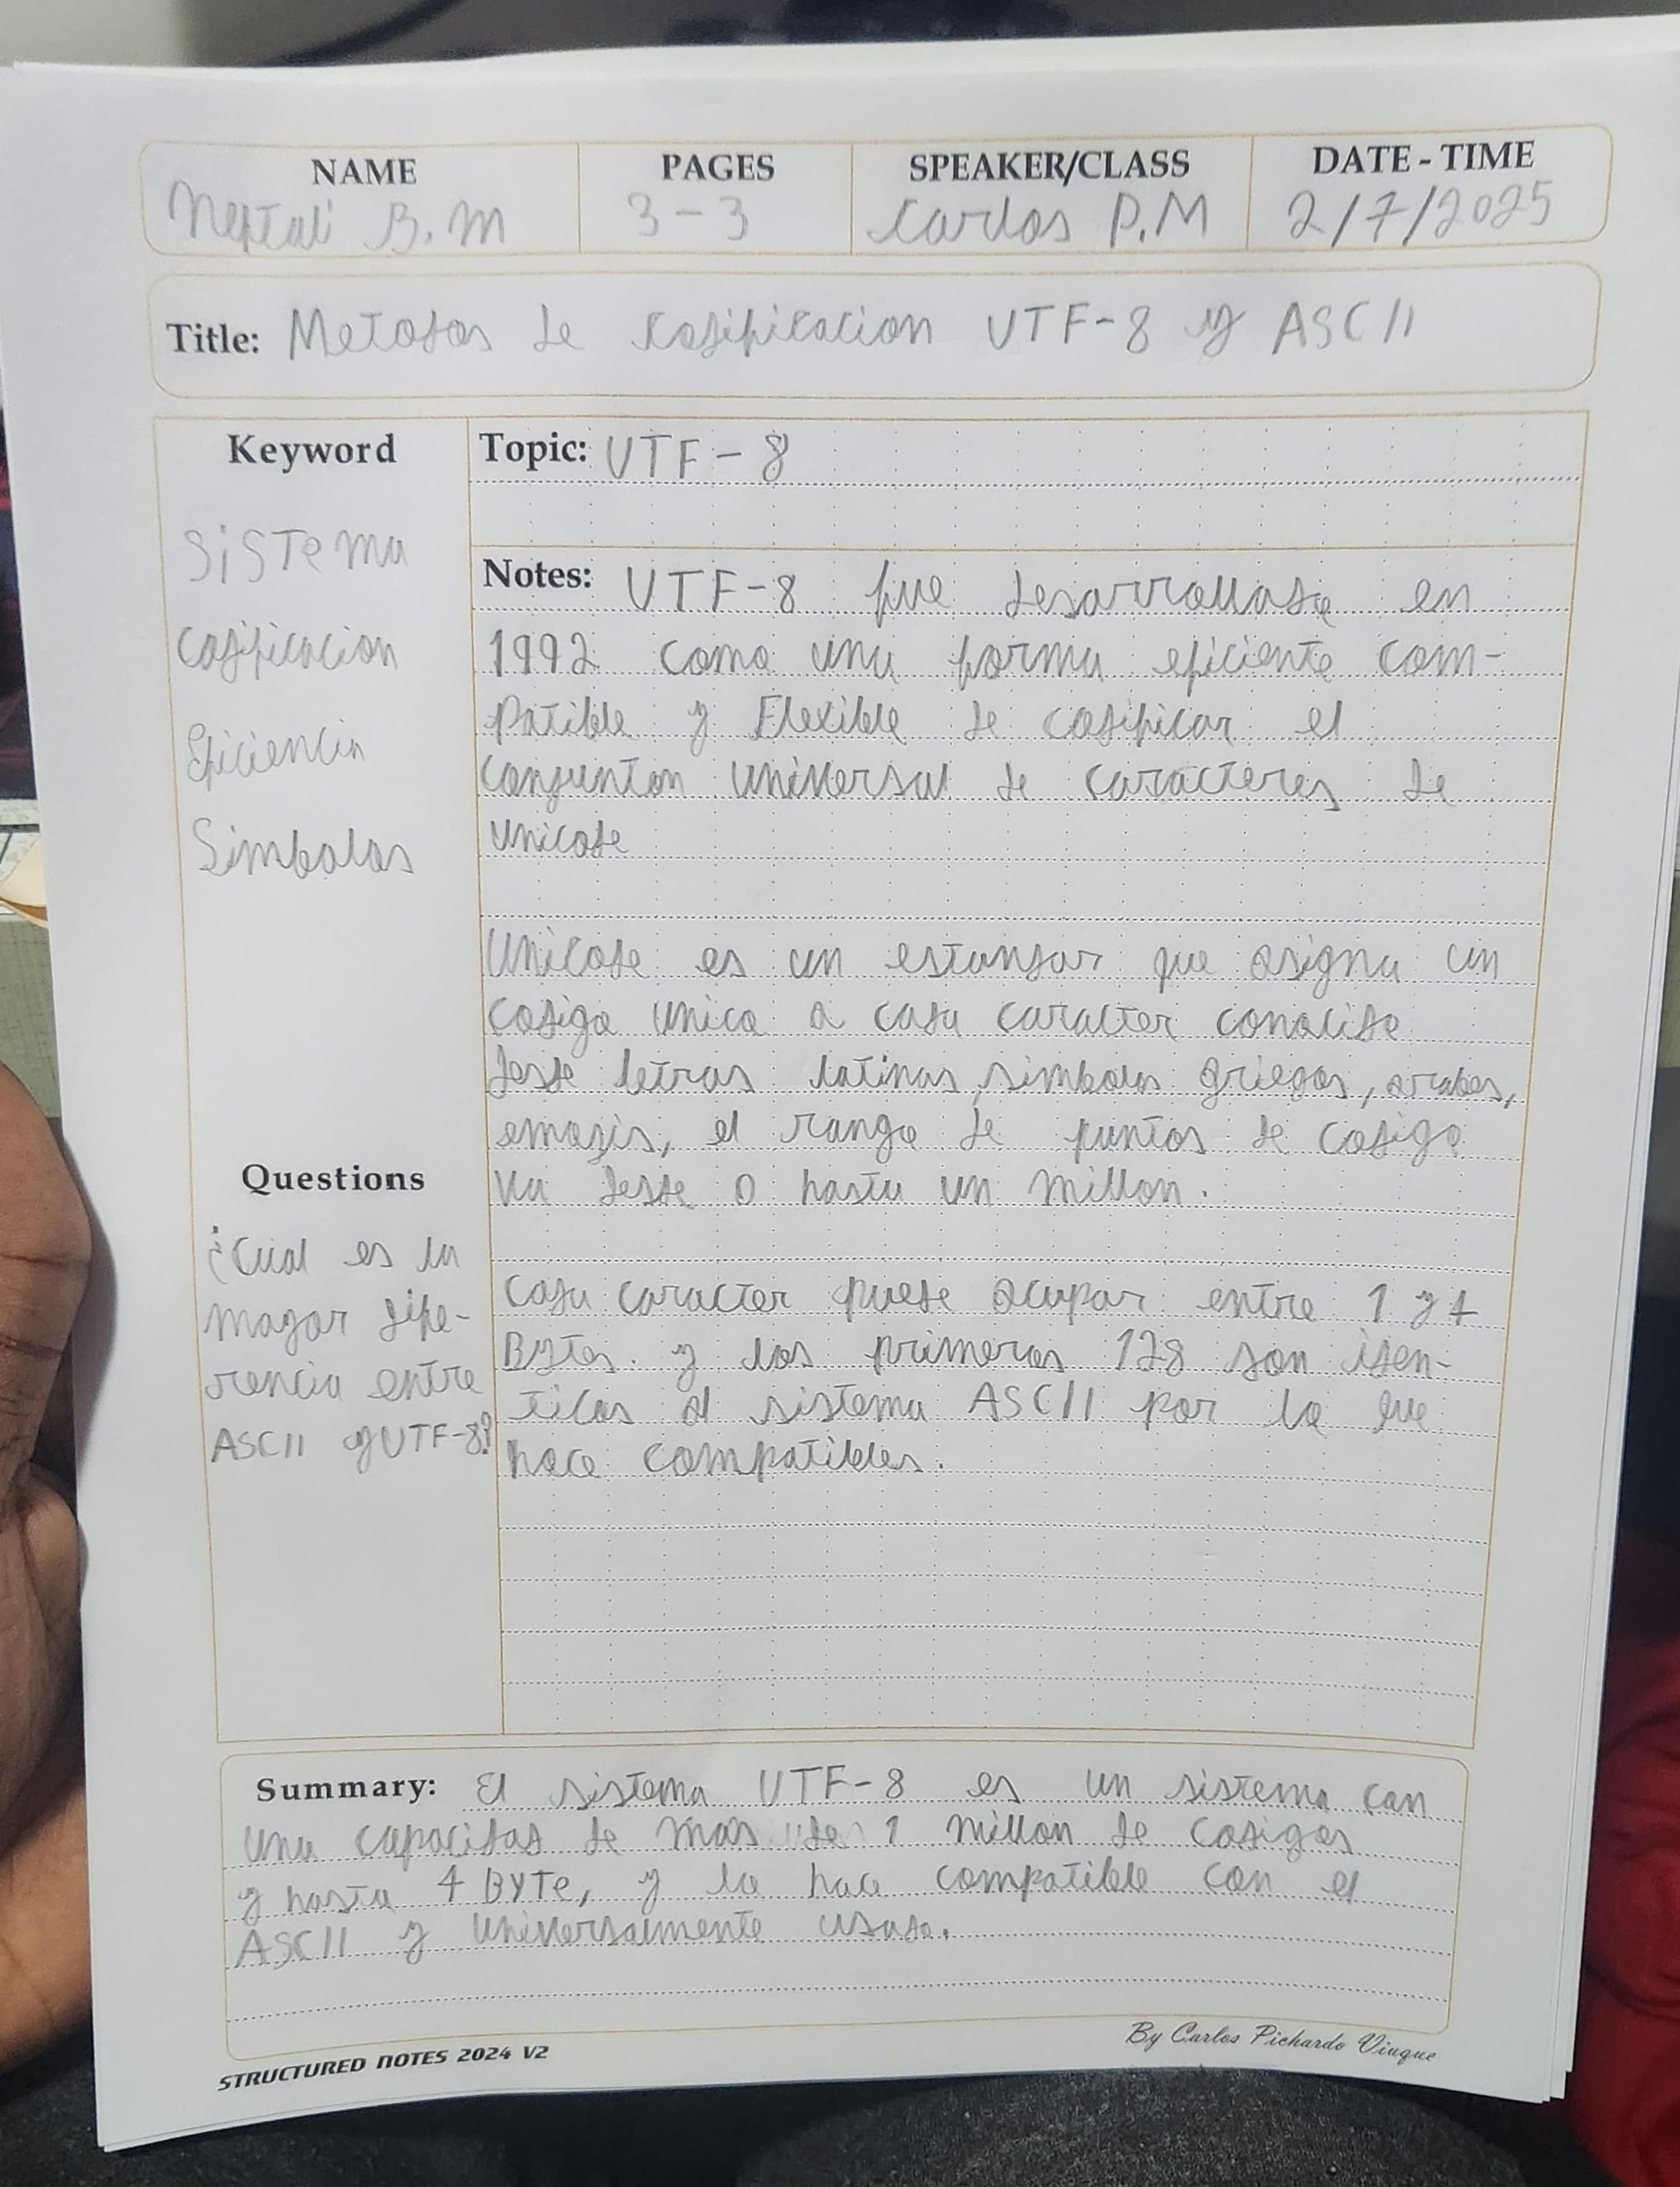 NAME PAGES SPEAKER/CLASS DATE - TIME
Neftali B.M 3-3 Carlos P.M 2/7/2025
Title: Metodos de codificacion UTF-8 y ASCII
Keyword
Sistema
Codificacion
Eficiencia
Simbolos
Topic: UTF-8
Notes: UTF-8 fue desarrollado en
1992 como una forma eficiente com-
patible y Flexible de codificar el
conjunton universal de caracteres de
unicode
Unicode es un estandar que asigna un
codigo unico a cada caracter conocido
desde letras latinas, simbolos griegos, arabes,
emojis, el rango de puntos de codigo
va desde 0 hasta un millon.
Cada caracter puede ocupar entre 1 y 4
Bytes. y los primeros 128 son iden-
ticos al sistema ASCII por lo que
hace compatibles.
Questions
¿Cual es la
mayor dife-
rencia entre
ASCII y UTF-8?
Summary: El sistema UTF-8 es un sistema con
una capacidad de mas de 1 millon de codigos
y hasta 4 BYTe, y lo hace compatible con el
ASCII y universalmente usado.
STRUCTURED NOTES 2024 V2
By Carlos Pichardo Viuque